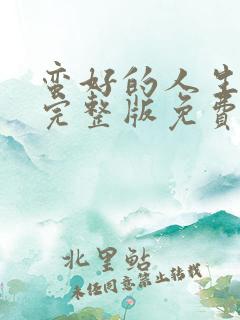 蛮好的人生
完整版免费
北里鲇
未经同意禁止转载